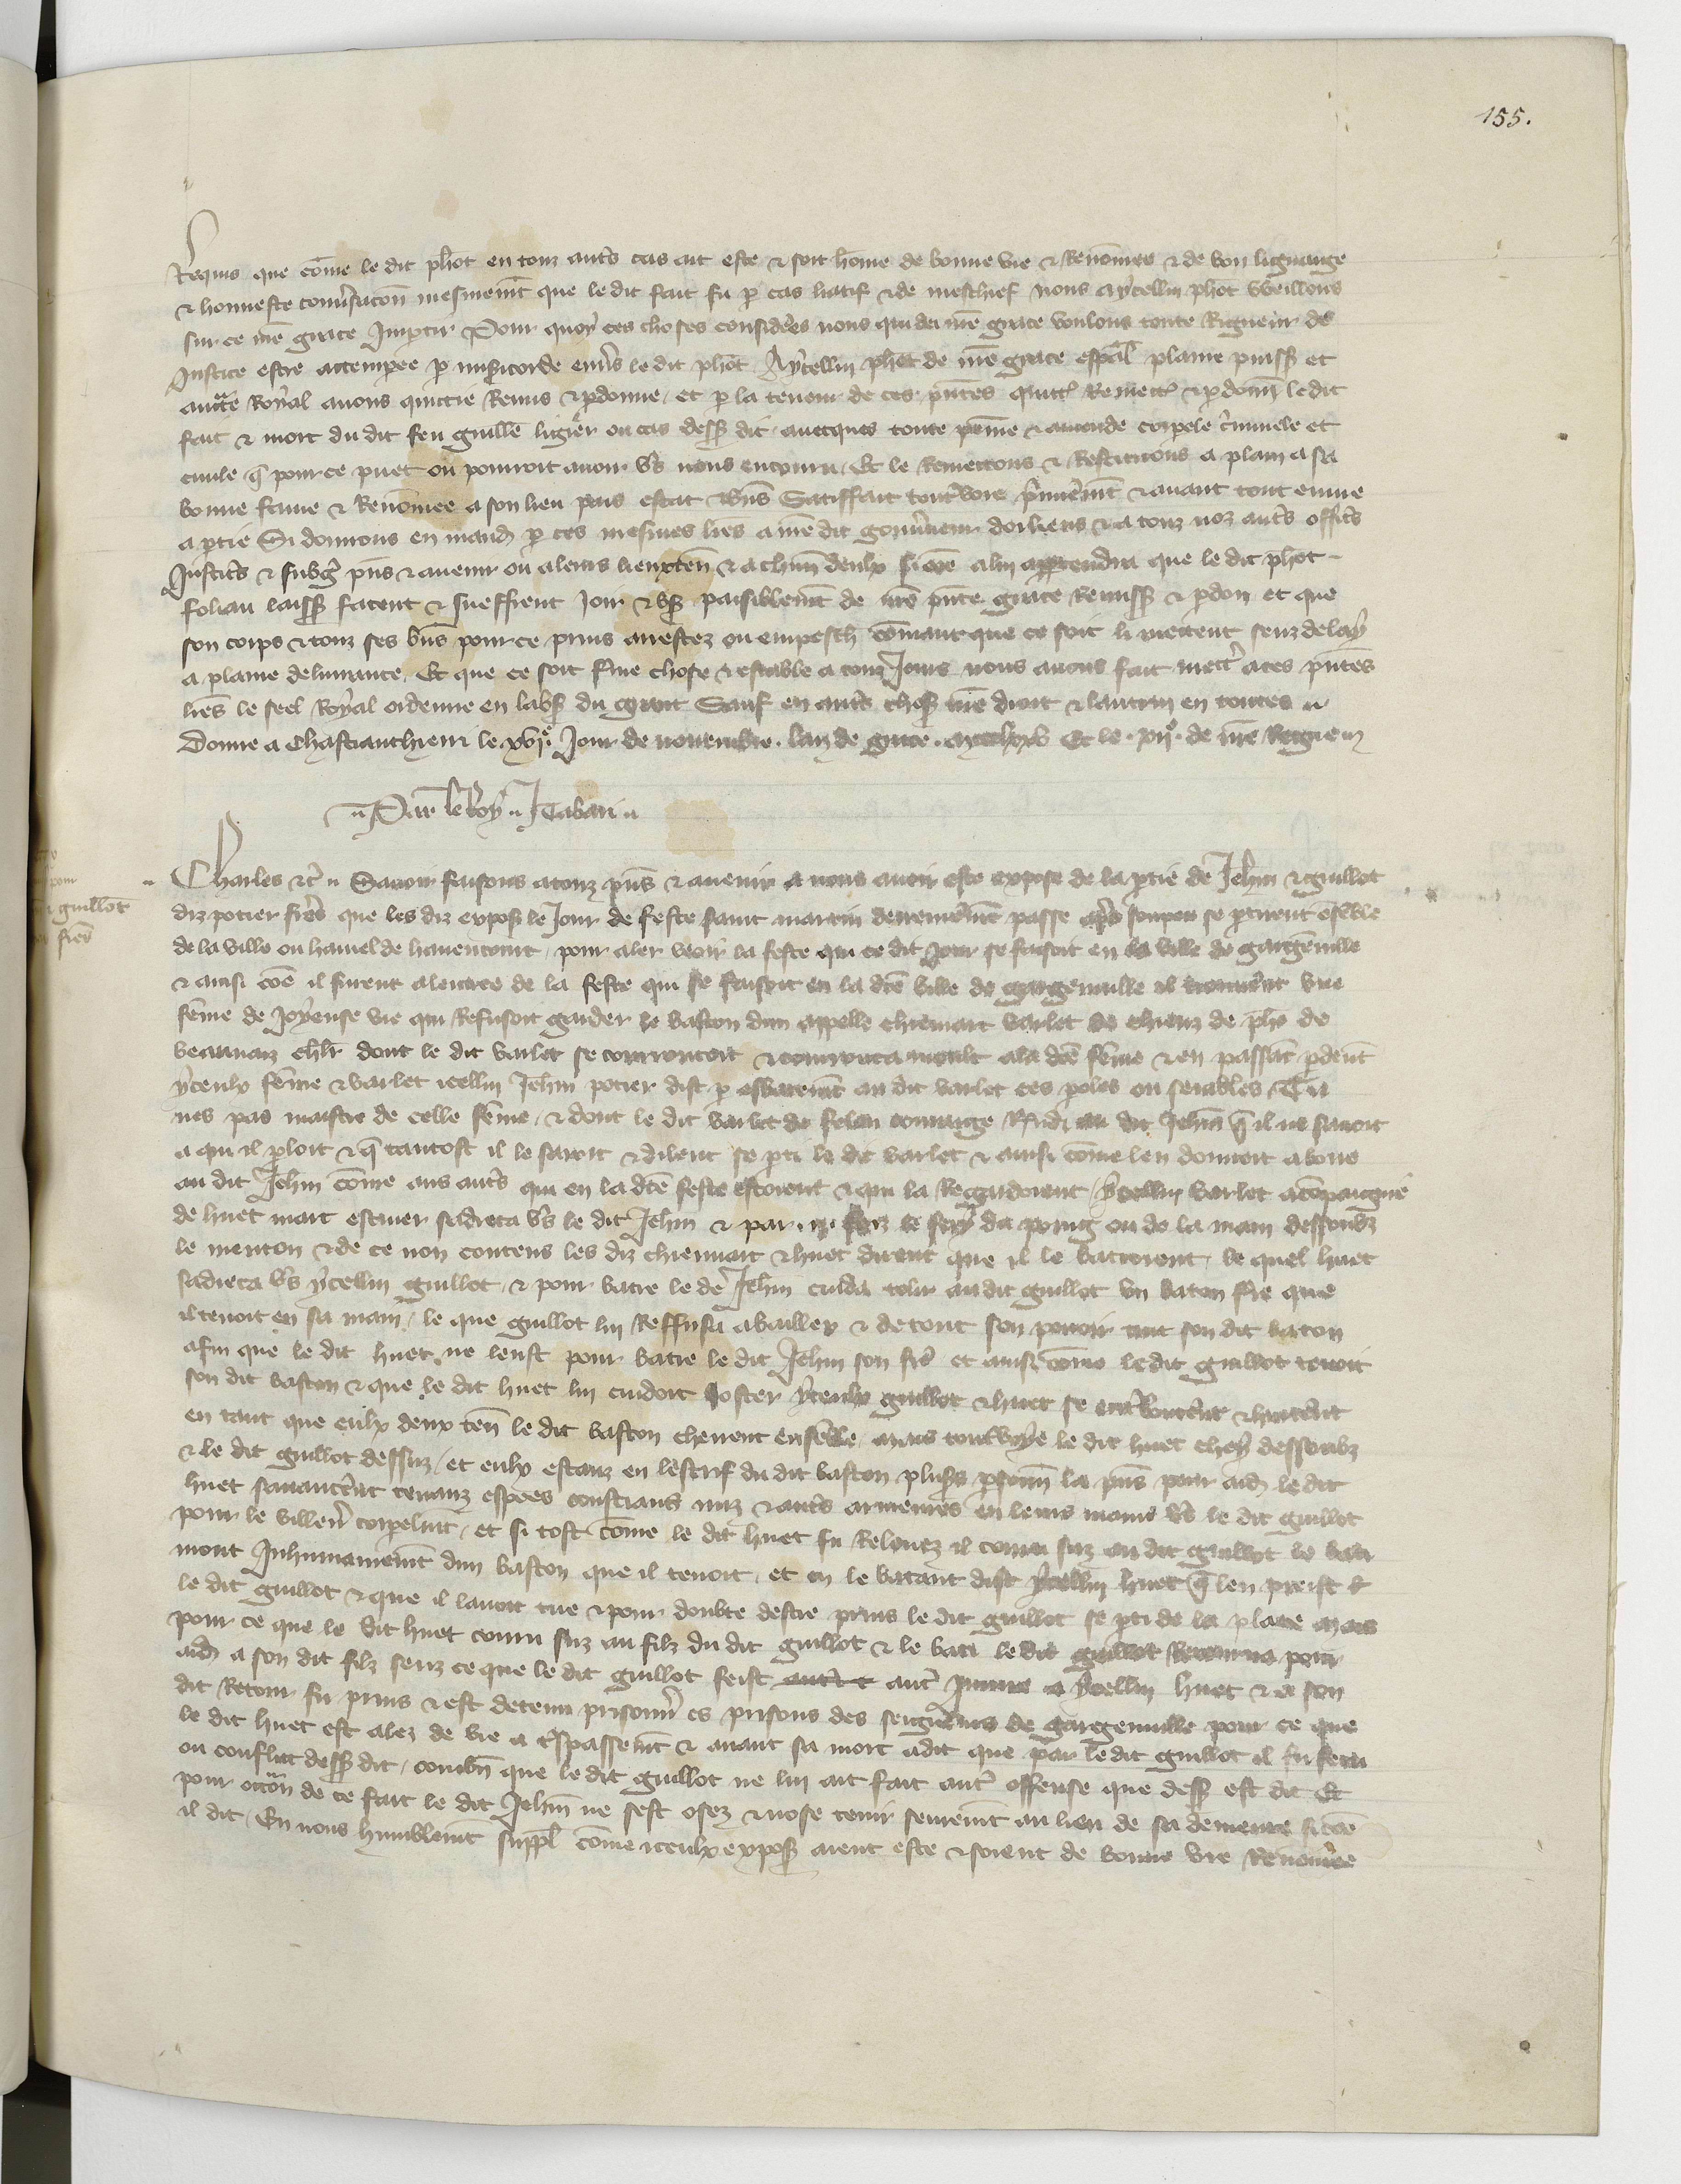 155.
Requis que cōme le dit phot en touz autrs cas ait este & soit hōme de bonne vie & Renōmee & de bon lignaige
& honneste conv̄sacon mesmemt que le dit fait fu p cas hatif & de meschief nous a ycelluy phot vueillons
sur ce nr̄e grace Impartir Pour quoy ces choses considerees nous qui de nr̄e grace voulons toute Rigueur de
Justice estre attempree p misericorde envs le dit phot A ycelluy phot de nr̄e grace espāl plaine puissā et
aucte Royal avons quictie Remis & pdonne et p la teneur de ces pn̄tes quitt Remett & pdonn le dit
fait & mort du dit feu guille ligier ou cas dessus dit avecques toute peine & amende corpele criminele et
civile q̄ pour ce puet ou pourroit avoir vs nous encouru Et le Remettons & Restituons a plain a sa
bonne fame & Renōmee a son lieu pais estat & biēs Satiffait toutevoie premieremt & avant tout euvre
a ptie Si donnons en mand p ces mesmes lr̄es a nr̄e dit gouvneur dorliens & a touz noz autrs offics
Justics & subgez pn̄s & avenir ou a leurs lieuxten & a chūn deulx si cōe a luy appartendra que le dit phot
foliau laissent facent & sueffrent Joir & user paisiblemt de nr̄e pn̄te grace Remiss & pdon et que
son corps & touz ses biēs pour ce prins arrestez ou empesch cōmant que ce soit li mettent senz delay
a plaine delivrance Et que ce soit ferme chose & estable a touz Jours nous avons fait mettre a ces pn̄tes
lr̄es le seel Royal ordenne en labs du grant Sauf en autrs choses nr̄e droit & lautruy en toutes
Donne a Chastiauthierri le xvje Jour de novembre lan de grace mccclxxv Et le xije de nr̄e Regne
Par le Roy Tabari
guillot
freres
Charles &c Savoir faisons a touz pn̄s & avenir a nous avoir este expose de la ptie de Jehan & guillot
diz potier freres que les diz expos le Jour de feste saint martin derrenieremt passe apres souper se ptirent ensēble
de la ville ou hamel de hanencourt pour aler veoir la feste qui ce dit Jour se faisoit en la ville de gargēville
& ainsi cōe il furent a lentree de la feste qui se faisoit en la dce ville de gargenville il trouverent une
fēme de Joyeuse vie qui Refusoit garder le baston dun appelle chiennart varlet de chiens de phe de
beaunaiz chlr dont le dit varlet se courroucoit & courrouca moult a la dce fēme & en passāt pdevāt
yceulx fēme & varlet icelluy Jehan potier dist p esbatemt au dit varlet ces poles ou semblables Tu
nes pas maistre de celle fēme & dont le dit varlet de felon couraige Respondi au dit Jehan q̄ il ne savoit
a qui il ploit & q̄ tantost il le saroit & dilent se pti le dit varlet & ainsi cōme len donnoit a boire
au dit Jehan cōme aus autrs qui en la dce feste estoient & qui la Regardoient ycelluy varlet acōpaigne
de huet mart escuier sadreca vs le dit Jehan & par foiz le fery du poing ou de la main dessoubz
le menton & de ce non contens les diz chiennart & huet dirent que il le battroient le quel huet
sadreca vs ycelluy guillot & pour batre le de Jehan cuida tolir au dit guillot un baton ferre que
il tenoit en sa main le que guillot luy Reffusa a bailler & de tout son povoir tint son dit baton
afin que le dit huet ne leust pour batre le dit Jehan son frere et ainsi cōme le dit guillot tenoit
son dit baston & que le dit huet lui cuidoit oster yceulx guillot & huet se entrebouterent & hurterent
en tant que eulx deux ten le dit baston cheirent ensēble mais toutevoye le dit huet chey dessoubz
& le dit guillot dessus et eulx estanz en lestrif du dit baston plusrs psonn la pn̄s pour aid le dit
huet savancerent tenanz espees coustiaus nuz & autrs armeures en leurs mains vs le dit guillot
pour le villener corpelmt et si tost cōme le dit huet fu Relevez il couru suz au dit guillot le bati
moult Inhumainemt dun baston que il tenoit et en le batant dist ycelluy huet q̄ len preist
le dit guillot & que il lavoit tue & pour doubte destre prins le dit guillot se pti de la place mais
pour ce que le dit huet couru suz au filz du dit guillot & le bati le dit guillot Retourna pour
aid a son dit filz senz ce que le dit guillot feist autre Injure a ycelluy huet & a son
dit Retour fu prins & est detenu prisonnier es prisons des seigneurs de gargenville pour ce que
le dit huet est alez de vie a trespassemt & avant sa mort a dit que par le dit guillot il fu feru
ou conflict dessus dit combn̄ que le dit guillot ne luy ait fait autre offense que dess est dit Et
pour occōn de ce fait le dit Jehan ne sest osez & nose tenir seuremt au lieu de sa demeure si cōe
il dit En nous humblemt suppl cōme iceulx expos aient este & soient de bonne vie Renommee